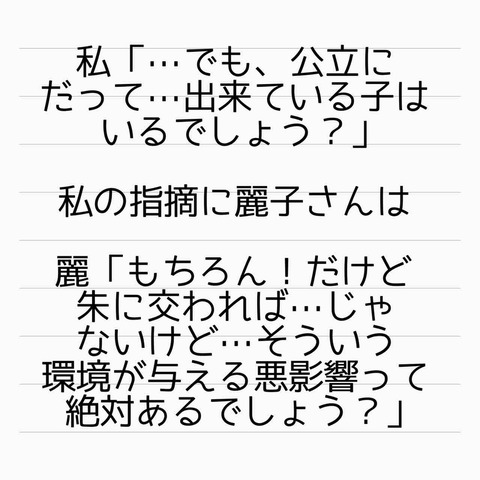 私「…でも、公立に
だって…出来ている子は
いるでしょう？」
私の指摘に麗子さんは
麗「もちろん！だけど
朱に交われば…じゃ
ないけど…そういう
環境が与える悪影響って
絶対あるでしょう？」